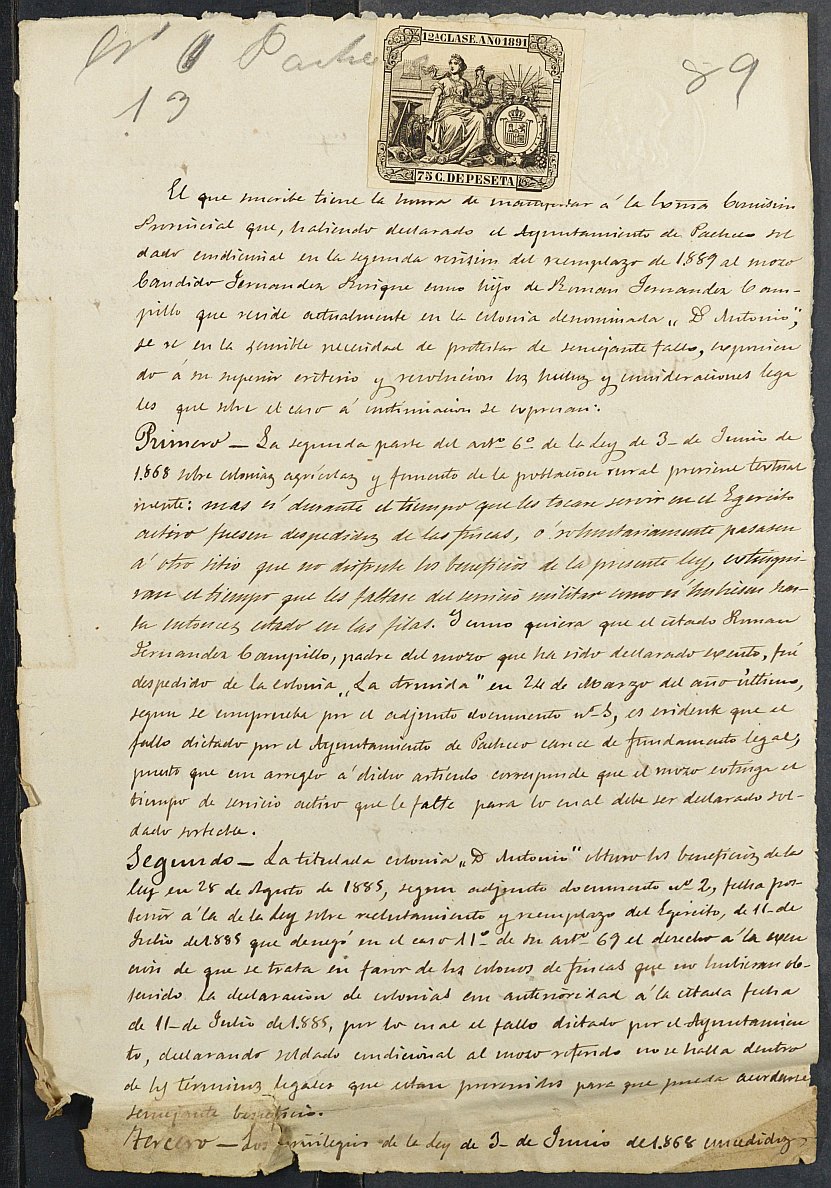 Pacheco
13
89
12ª CLASE. AÑO 1891
75 C. DE PESETA
El que suscribe tiene la honra de manifestar á la Exma Comisión
Provincial que, habiendo declarado el Ayuntamiento de Pacheco sol
dado condicional en la segunda revisión del reemplazo de 1889 al mozo
Candido Fernandez Enrique como hijo de Roman Fernandez Cam-
pillo que reside actualmente en la colonia denominada „Dn Antonio",
se ve en la sensible necesidad de protestar de semejante fallo, exponien
do á su superior criterio y resolucion los hechos y consideraciones lega
les que sobre el caso á continuacion se expresan:
Primero — La segunda parte del artº 6º de la ley de 3 - de Junio de
1.868 sobre colonias agrícolas y fomento de la poblacion rural previene textual
mente: mas si durante el tiempo que les tocare servir en el Egercito
activo fuesen despedidos de las fincas, ó voluntariamente pasasen
á otro sitio que no disfrute los beneficios de la presente ley, extingui
ran el tiempo que les faltase del servicio militar como si hubiesen has-
ta entonces estado en las filas. Y como quiera que el citado Roman
Fernandez Campillo, padre del mozo que ha sido declarado exento, fué
despedido de la colonia „La Armida" en 24 de Marzo del año último,
segun se comprueba por el adjunto documento nº 3, es evidente que el
fallo dictado por el Ayuntamiento de Pacheco carece de fundamento legal,
puesto que con arreglo á dicho artículo corresponde que el mozo extinga el
tiempo de servicio activo que le falte para lo cual debe ser declarado sol-
dado sorteable.
Segundo — La titulada colonia „Dn Antonio" obtuvo los beneficios de la
ley en 28 de Agosto de 1885, segun adjunto documento nº 2, fecha pos-
terior á la de la Ley sobre reclutamiento y reemplazo del Egército, de 11 - de
Julio de 1885 que denegó en el caso 11º de su artº 69 el derecho á la exen
cion de que se trata en favor de los colonos de fincas que no hubieran ob-
tenido la declaración de colonias con anterioridad á la citada fecha
de 11 - de Julio de 1.885, por lo cual el fallo dictado por el Ayuntamien
to, declarando soldado condicional al mozo referido no se halla dentro
de los términos legales que estan prevenidos para que pueda acordarse
semejante beneficio.
Tercero — Los privilegios de la ley de 3 - de Junio de 1.868 concedidos